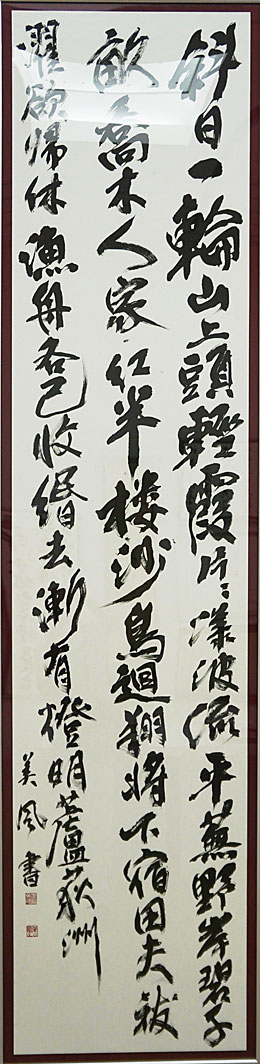 斜日一輪山上頭輕霞片〻漾波流平蕪野岸碧千
畝喬木人家紅半樓沙鳥迴翔將下宿田夫祓
濯欲歸休漁舟各已收緡去漸有燈明蘆荻洲
美風書